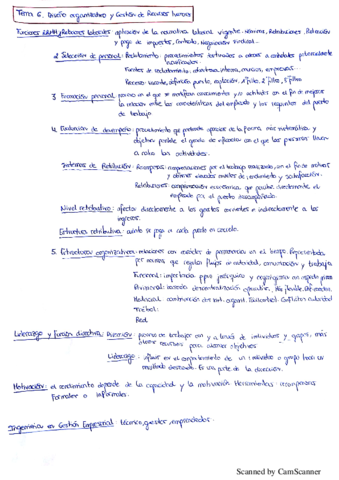 Tema 6. Diseño organizativo y Gestión de Recursos humanos
Funciones RRHH, Relaciones laborales: aplicación de la normativa laboral vigente: nómina, Retribuciones, Retención
y pago de impuestos, Contrato, Negociación Sindical.
2 Selección de personal: Reclutamiento: procedimientos destinados a atraer a candidatos potencialmente
cualificados.
Fuentes de reclutamiento:
3 Formación personal: proceso en el que se modifican conocimientos y/o actitudes con el fin de mejorar
la relación entre las características del empleado y los requisitos del puesto
de trabajo
4 Evaluación de desempeño: procedimiento que pretende apreciar de la forma más sistemática y
objetiva posible el grado de eficacia con el que las personas llevan
a cabo las actividades.
Sistemas de Retribución: Recompensas: compensaciones por el trabajo realizado, con el fin de motivar
y obtener niveles de rendimiento y satisfacción.
Retribuciones: compensación económica, que percibe directamente el
empleado por el puesto
Nivel retributivo: afectar directamente a los gastos e indirectamente a los
ingresos.
Estructura retributiva: cuánto se paga a cada puesto en escala.
5. Estructuras organizativas: relaciones con carácter de permanencia en el tiempo. Representadas
por que regulan flujos de autoridad, comunicación y trabajo
Funcional: importancia jerárquico y
Divisional: descentralización Más flexible.
Matricial: combinación Conflictos autoridad
Trébol:
Red
Liderazgo y Función directiva: Dirección: proceso de trabajar con y a través de individuos y grupos, más
otros recursos para alcanzar objetivos
Liderazgo: influir en el comportamiento de un individuo o grupo hacia un
resultado deseado. Es una parte de la dirección.
Motivación: el rendimiento depende de la capacidad y la motivación. Herramientas: recompensas
Formales o informales.
Ingeniería en Gestión Empresarial: técnico, gestor, emprendedor.
Scanned by CamScanner